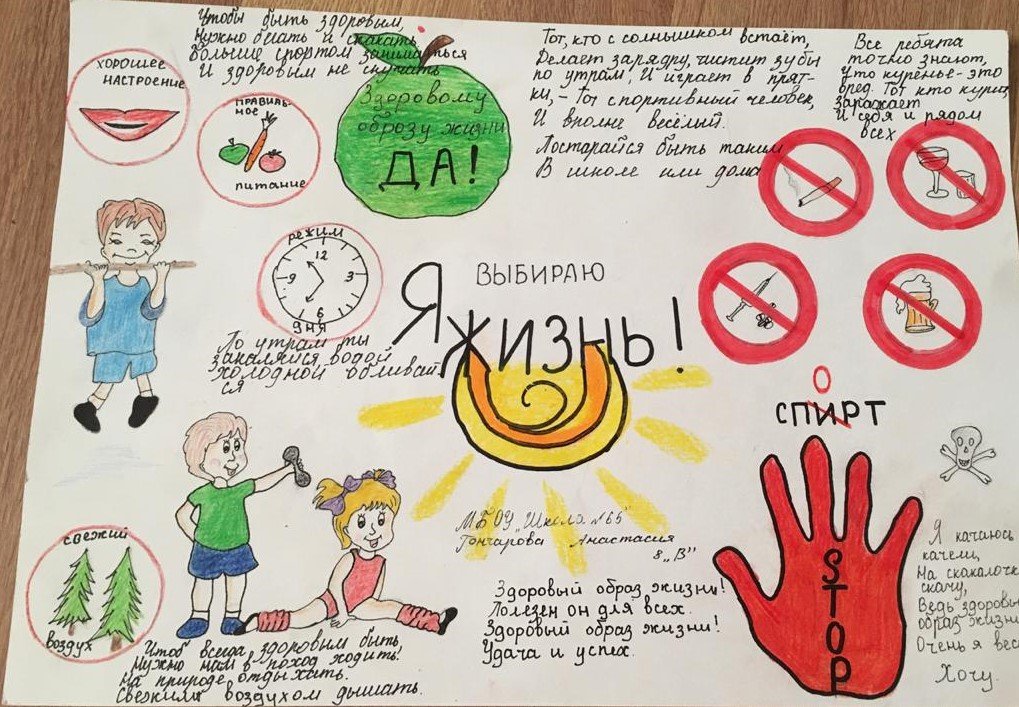 Чтобы быть здоровым,
Нужно бегать и скакать,
Больше спортом заниматься
И здоровым не скучать
ХОРОШЕЕ
НАСТРОЕНИЕ
ПРАВИЛЬ-
НОЕ
питание
Здоровому
оброзу жизни
ДА!
Тот, кто с солнышком встаёт,
Делает зарядку, чистит зубы
по утрам, И играет в прят-
ки, – Тот спортивный человек,
И вполне весёлый.
Постарайся быть таким
В школе или дома
Все ребята
точно знают,
Что куренье - это
вред. Тот кто курит,
заражает
И себя и рядом
всех
режим
12
3
6
9
дня
По утрам ты
закаляйся водой
холодной обливай-
ся
Я ВЫБИРАЮ
ЖИЗНЬ!
О
СПИРТ
STOP
свежий
воздух
МБОУ „Школа №65"
Гончарова Анастасия
8 „В"
Чтоб всегда здоровым быть,
Нужно нам в поход ходить!
На природе отдыхать.
Свежким воздухом дышать.
Здоровый образ жизни!
Полезен он для всех.
Здоровый образ жизни!
Удача и успех.
Я качаюсь
качели,
На скакалочк
скачу,
Ведь здоровы
образ жизни
Очень я вес
Хочу.